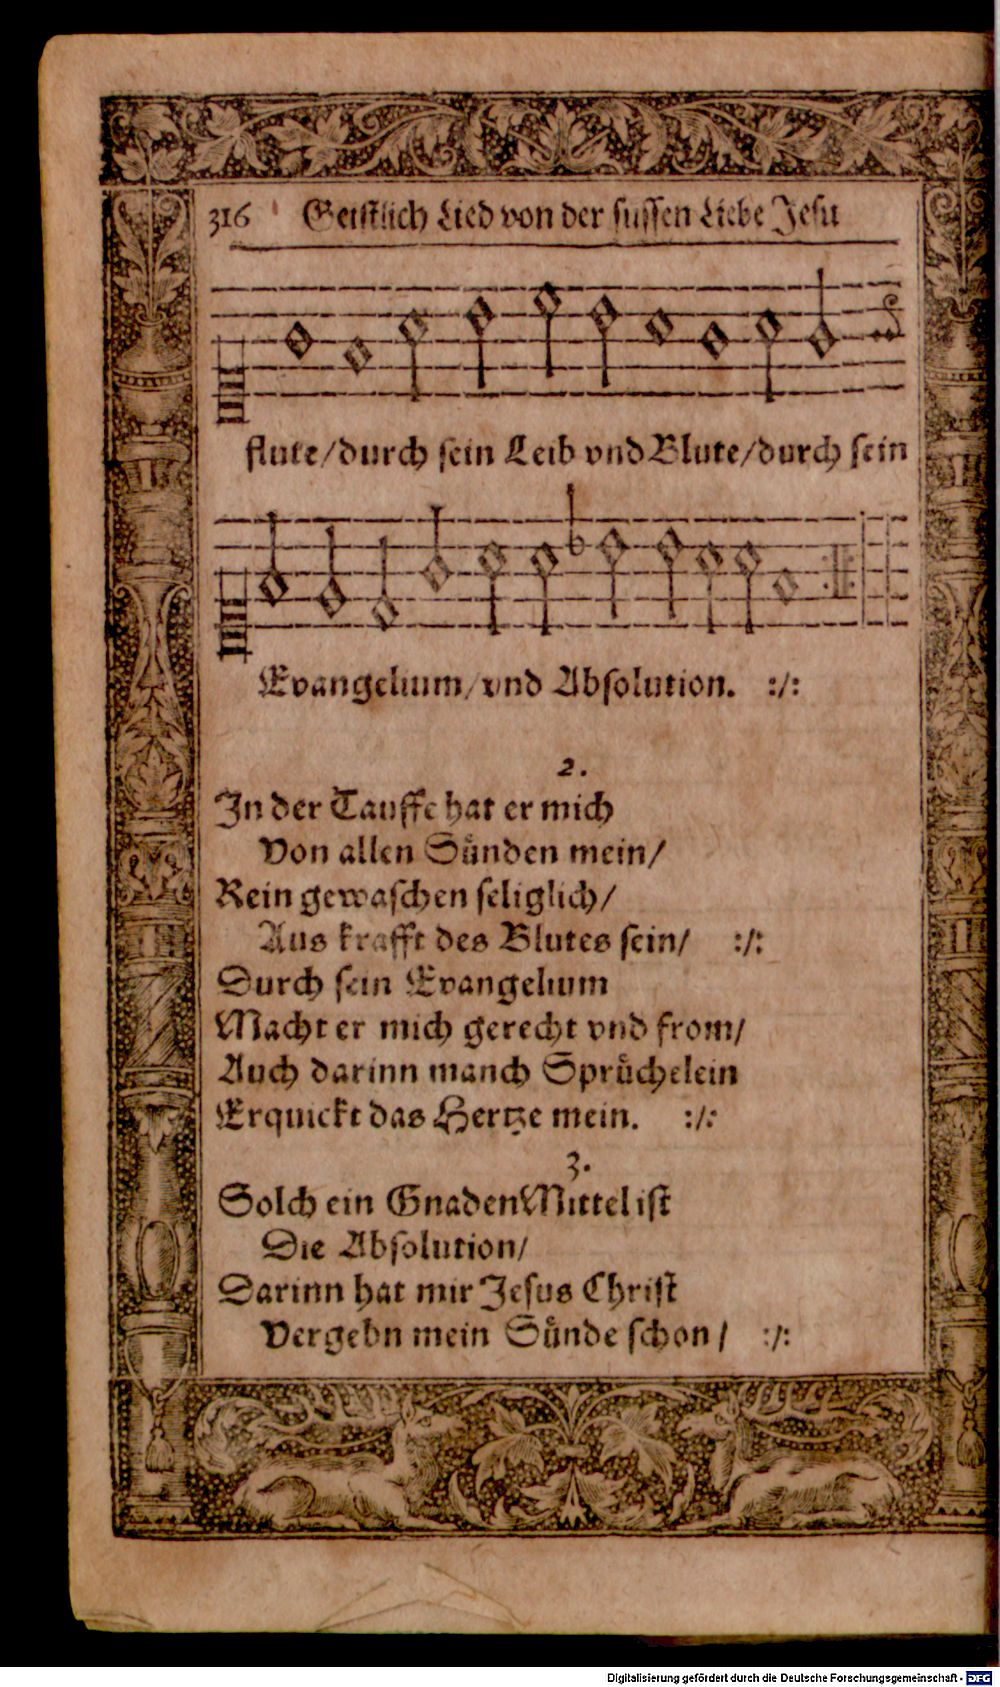 316 Geistlich Lied von der süssen Liebe Jesu
flute/durch sein Leib vnd Blute/durch sein
Evangelium/vnd Absolution. :/:
2.
In der Tauffe hat er mich
Von allen Sünden mein/
Rein gewaschen seliglich/
Aus krafft des Blutes sein/ :/:
Durch sein Evangelium
Macht er mich gerecht vnd from/
Auch darinn manch Sprüchelein
Erquickt das Hertze mein. :/:
3.
Solch ein GnadenMittel ist
Die Absolution/
Darinn hat mir Jesus Christ
Vergebn mein Sünde schon/ :/:
Digitalisierung gefördert durch die Deutsche Forschungsgemeinschaft - DFG